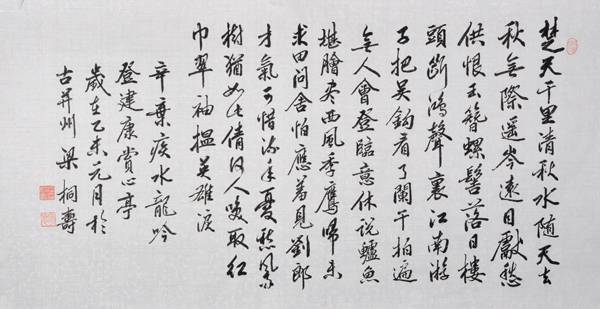 楚天千里清秋水随天去
秋無際遥岑遠目獻愁
供恨玉簪螺髻落日樓
頭斷鴻聲裏江南游
子把吴鈎看了闌干拍遍
無人會登臨意休说鱸魚
堪膾盡西風季鷹歸未
求田問舍怕應羞見劉郎
才氣可惜流年憂愁風雨
樹猶如此倩何人唤取红
巾翠袖揾英雄淚
辛棄疾水龍吟
登建康賞心亭
歲在乙未元月於
古并州梁桐壽